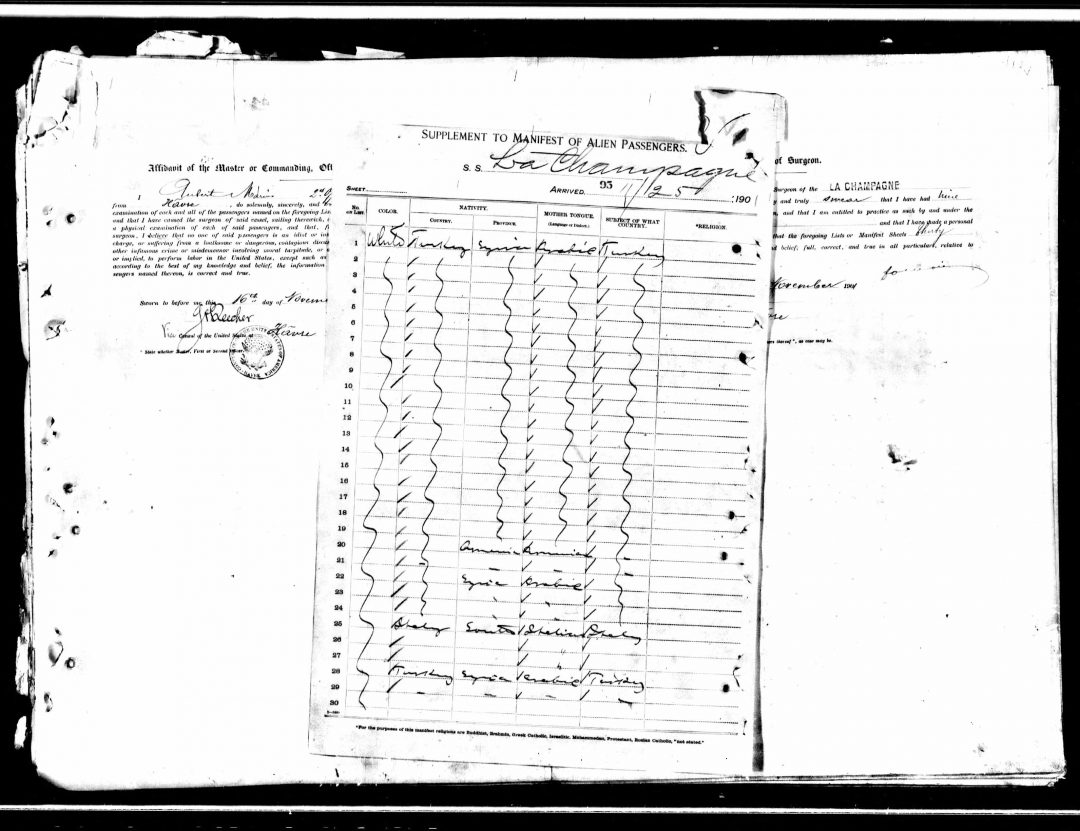 SUPPLEMENT TO MANIFEST OF ALIEN PASSENGERS.
S. S. La Champagne
SHEET
ARRIVED, 95 11/25 190
No. on List.
COLOR.
NATIVITY.
COUNTRY.
PROVINCE.
MOTHER TONGUE.
(Language or Dialect.)
SUBJECT OF WHAT COUNTRY.
*RELIGION.
1 White Turkey Syria Arabic Turkey
2
3
4
5
6
7
8
9
10
11
12
13
14
15
16
17
18
19
20 Armenia Armenian
21
22 Syria Arabic
23
24
25 Italy South Italian Italy
26
27
28 Turkey Syria Arabic Turkey
29
30
*For the purposes of this manifest religions are Buddhist, Brahmin, Greek Catholic, Israelitic, Mohammedan, Protestant, Roman Catholic, "not stated."
Affidavit of the Master or Commanding, Off
I
from Havre, do solemnly, sincerely, and
examination of each and all of the passengers named on the foregoing Lis
and that I have caused the surgeon of said vessel, sailing therewith,
a physical examination of each of said passengers, and that,
surgeon, I believe that no one of said passengers is an idiot or
charge, or suffering from a loathsome or dangerous, contagious
other infamous crime or misdemeanor involving moral turpitude, or
or implied, to perform labor in the United States, except such as
according to the best of my knowledge and belief, the information
sengers named therein, is correct and true.
Sworn to before me this 16th day of Novem
Vice Consul of the United States at Havre
* State whether Master, First or Second Officer.
of Surgeon.
Surgeon of the LA CHAMPAGNE
and truly swear that I have had nine
, and that I am entitled to practice as such by and under the
and that I have made a personal
that the foregoing Lists or Manifest Sheets
belief, full, correct, and true in all particulars, relative to
November 1901
thereof", as case may be.